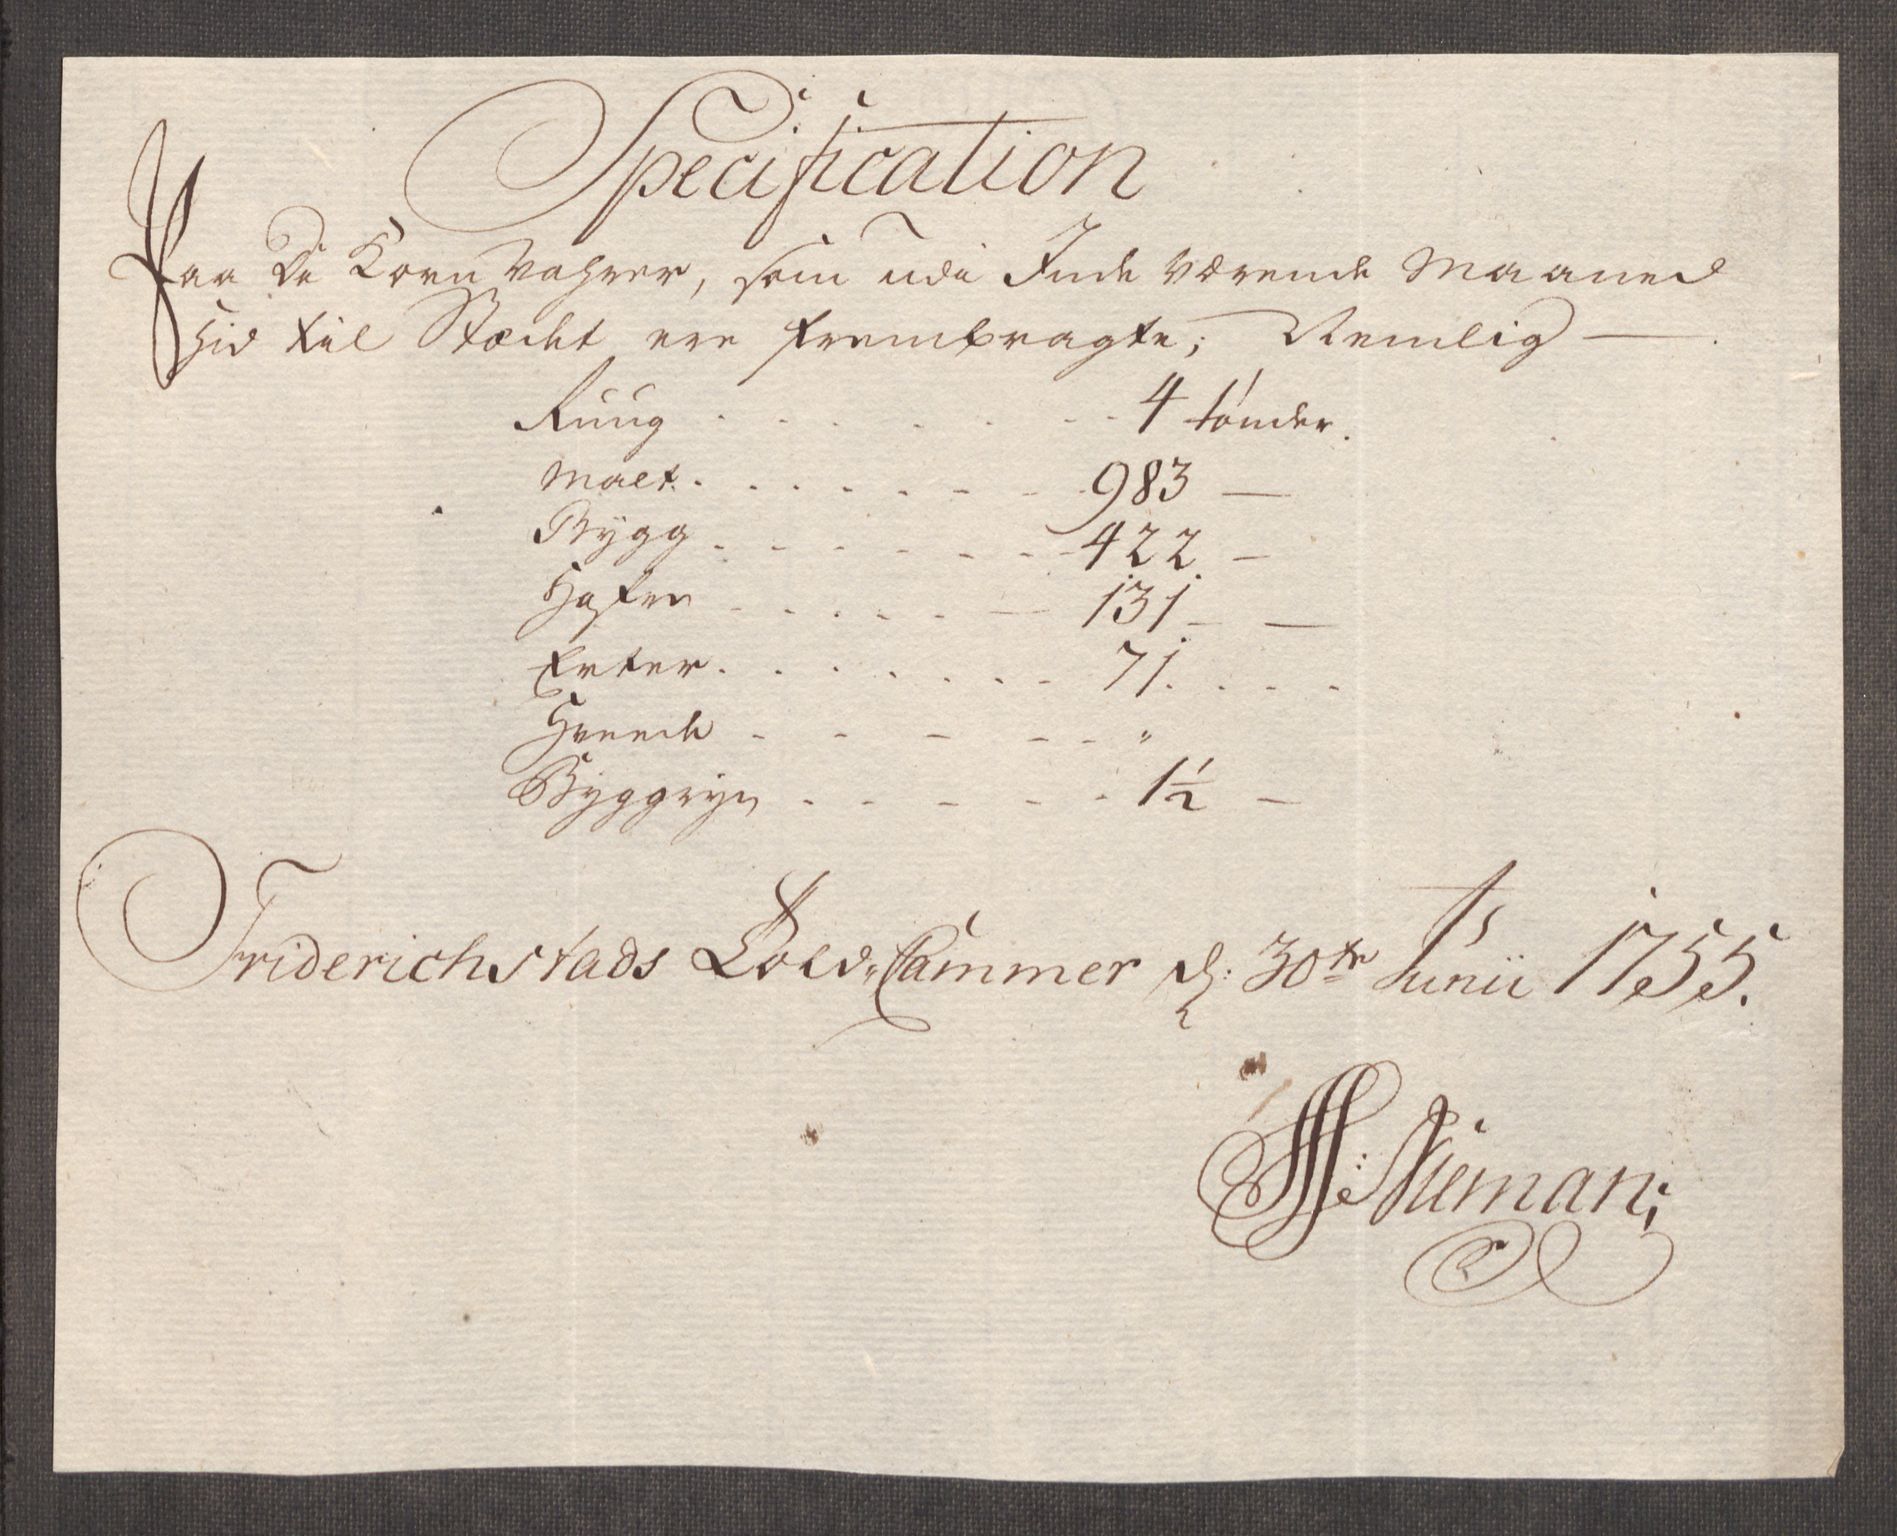 Specification
Paa De Korn Vahrer, som udi Inde værende Maaned
hid til Stædet ere frembragte; Nemlig —
Ruug . . . . . . . 4 tønder.
Malt . . . . . . . 983 —
Bygg . . . . . . . 422 —
Hafre . . . . . . 131 — —
Erter . . . . . . . 71 . . . .
Hveede - - - - - "
Byggryn . - - - - 1½ —
Friderichstads Told-Cammer d: 30te Junii 1755.
Nieman;